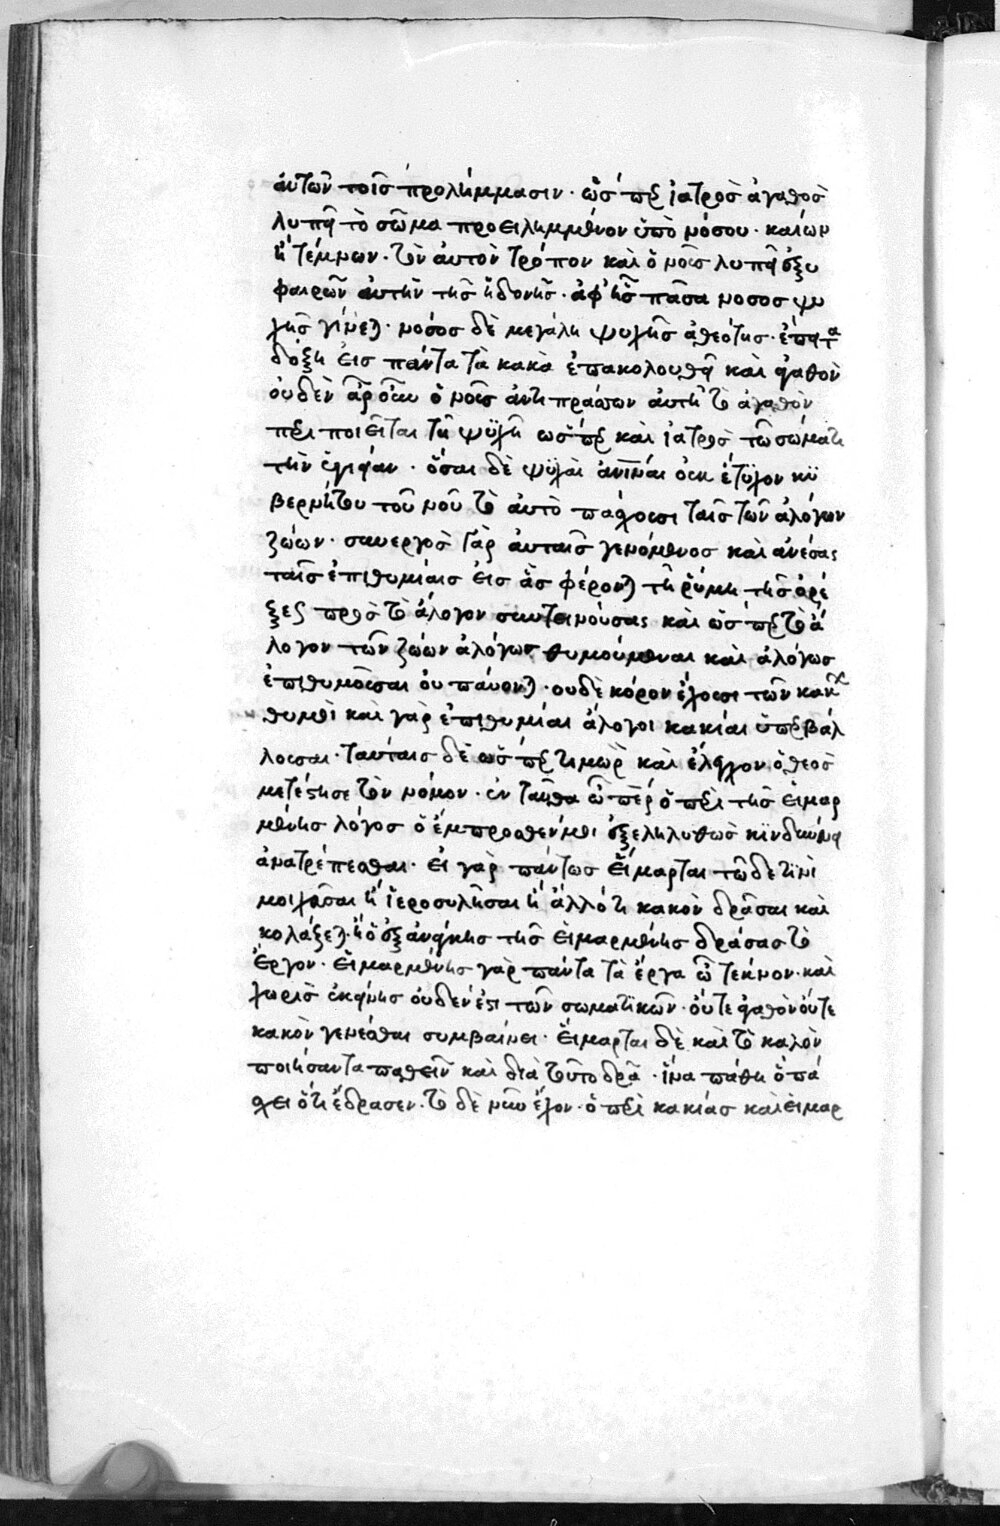 ἀυτῶν τοῖς προλήμμασιν · ὥσπερ ἰατρὸς ἀγαθὸς
λυπεῖ τὸ σῶμα προειλημμένον ὑπὸ νόσου · καίων
ἢ τέμνων · τὸν ἀυτὸν τρόπον καὶ ὁ νοῦς λυπεῖ ἐξυ
φαιρῶν ἀυτὴν τῆς ἡδονῆς · ἀφ' ἧς πᾶσα νοσος ψυ
χῆς γίνεται · νόσος δὲ μεγάλη ψυχῆς ἀθεότης ·
δόξη εἰς πάντα τὰ κακὰ ἐπακολουθεῖ καὶ ἀγαθὸν
ὀυδὲν ἆρ οὖν ὁ νοῦς ἀντιπράσσων ἀυτῆ τὸ ἀγαθὸν
περιποιεῖται τῆ ψυχῆ ὥσπερ καὶ ἰατρὸς τῶ σώματι
τὴν ὑγιείαν · ὅσαι δὲ ψυχαὶ ἀνίναι οὐκ ἔτυχον κυ
βερνήτου τοῦ νοῦ τὸ ἀυτὸ πάσχουσι ταῖς τῶν ἀλόγων
ζώων · συνεργὸς γὰρ ἀυταῖς γενόμενος καὶ ἀνέσας
ταῖς ἐπιθυμίαις εἰς ἃς φέρονται τῆ ῥύμη τῆς ὀρέ
ξεως πρὸς τὸ ἄλογον συντεινούσας καὶ ὥσπερ τὸ ἄ
λογον τῶν ζώων ἀλόγως θυμούμεναι καὶ ἀλόγως
ἐπιθυμοῦσαι ὀυ παύονται · ουδὲ κόρον ἔχουσι τῶν κακῶν
θυμοὶ καὶ γὰρ ἐπιθυμίαι ἄλογοι κακίαι ὑπερβάλ
λουσαι · ταύταις δὲ ὥσπερ τιμωρὸν καὶ ἔλεγχον ὁ θεὸς
μετέστησε τὸν νόμον · ἐνταῦθα ὦ πέρ ὁ περὶ τῆς εἱμαρ
μένης λόγος ὁ ἔμπροσθέν μοι ἐξεληλυθὼς κινδυνεύει
ἀνατρέπεσθαι · εἰ γὰρ πάντως εἵμαρται τῶδε τινὶ
μοιχεῦσαι ἢ ἱεροσυλῆσαι ἢ ἄλλό τι κακὸν δρᾶσαι καὶ
κολάζεται · ἢ ὁ ἐξ ἀνάγκης τῆς εἱμαρμένης δράσας τὸ
ἔργον · εἱμαρμένης γὰρ πάντα τὰ ἔργα ὦ τέκνον · καὶ
χωρὶς ἐκείνης οὐδέν ἐστι τῶν σωματικῶν · ὀύτε ἀγαθὸν ὀύτε
κακὸν γενέσθαι συμβαίνει · εἵμαρται δὲ καὶ τὸ καλὸν
ποιήσαντα παθεῖν καὶ διὰ τοῦτο δρᾶ · ἵνα πάθη ὃ πά
σχει ὅτι ἔδρασεν · τὸ δὲ νῦν ἔχον · ὁ περὶ κακίας καὶ εἱμαρ